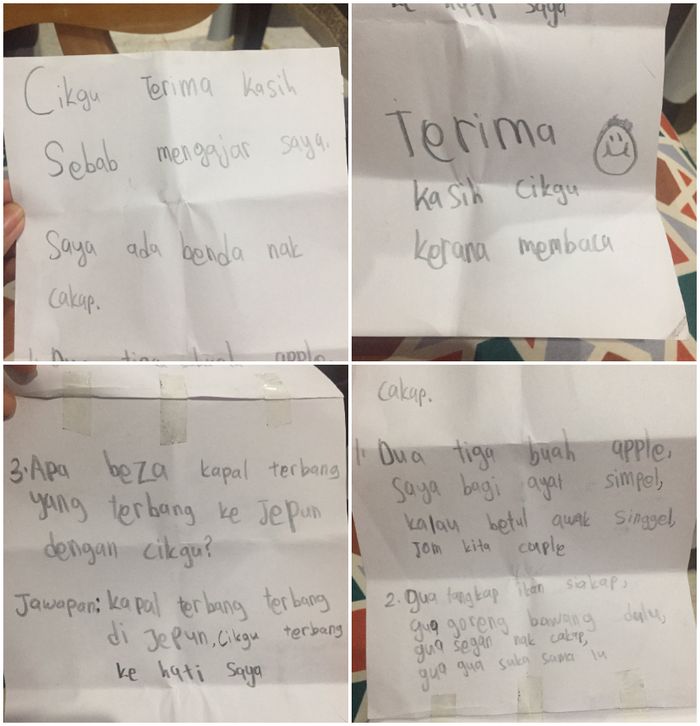 Cikgu Terima Kasih
Sebab mengajar saya.
Saya ada benda nak
cakap.
1. Dua tiga buah apple,
ke hati saya
Terima
Kasih Cikgu
kerana membaca
3. Apa beza kapal terbang
yang terbang ke Jepun
dengan cikgu?
Jawapan: kapal terbang terbang
di Jepun, Cikgu terbang
ke hati saya
cakap.
1. Dua tiga buah apple,
Saya bagi ayat simpel,
kalau betul awak singgel,
Jom kita cuple
2. gua tangkap ikan siakap,
gua goreng bawang dulu,
gua segan nak cakap,
gua gua suka sama lu